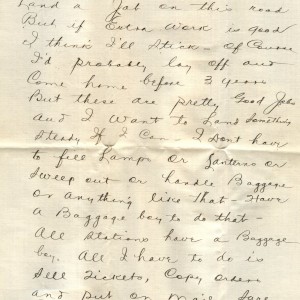 Land a Job on this road
But if Extra Work is good
I think I'll Stick - Of Course
I'd probably lay off and
Come home before 3 years
But these are pretty Good Jobs
And I Want to Land Something
Steady If I Can - I Dont have
to fill Lamps or Lanterns or
Sweep out or handle Baggage
Or Anything like that - Have
A Baggage boy to do that -
All Stations have a Baggage
boy. All I have to do is
Sell Tickets, Copy orders
and put on Mail